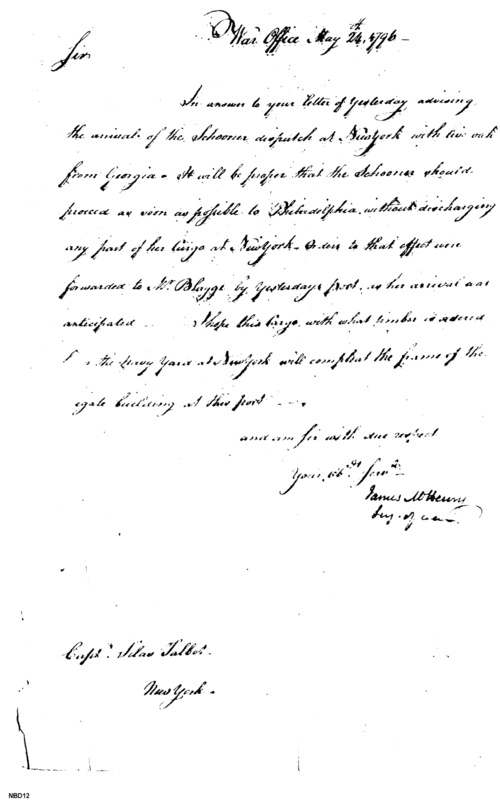 War Office May 24th. 1796 —
Sir
In answer to your letter of Yesterday advising
the arrival of the Schooner dispatch at New York with live oak
from Georgia. It will be proper that the Schooner should
proceed as soon as possible to Philadelphia, without discharging
any part of her Cargo at New York. Orders to that effect were
forwarded to Mr. Blagge by Yesterdays post, as her arrival was
anticipated I hope this Cargo, with what timber is ordered
the Navy Yard at New York will compleat the frame of the
igate building at this port
and am Sir with due respect
Your obdt. Servt.
James McHenry
Secy. of war.
Captn. Silas Talbot.
New York.
NBD12